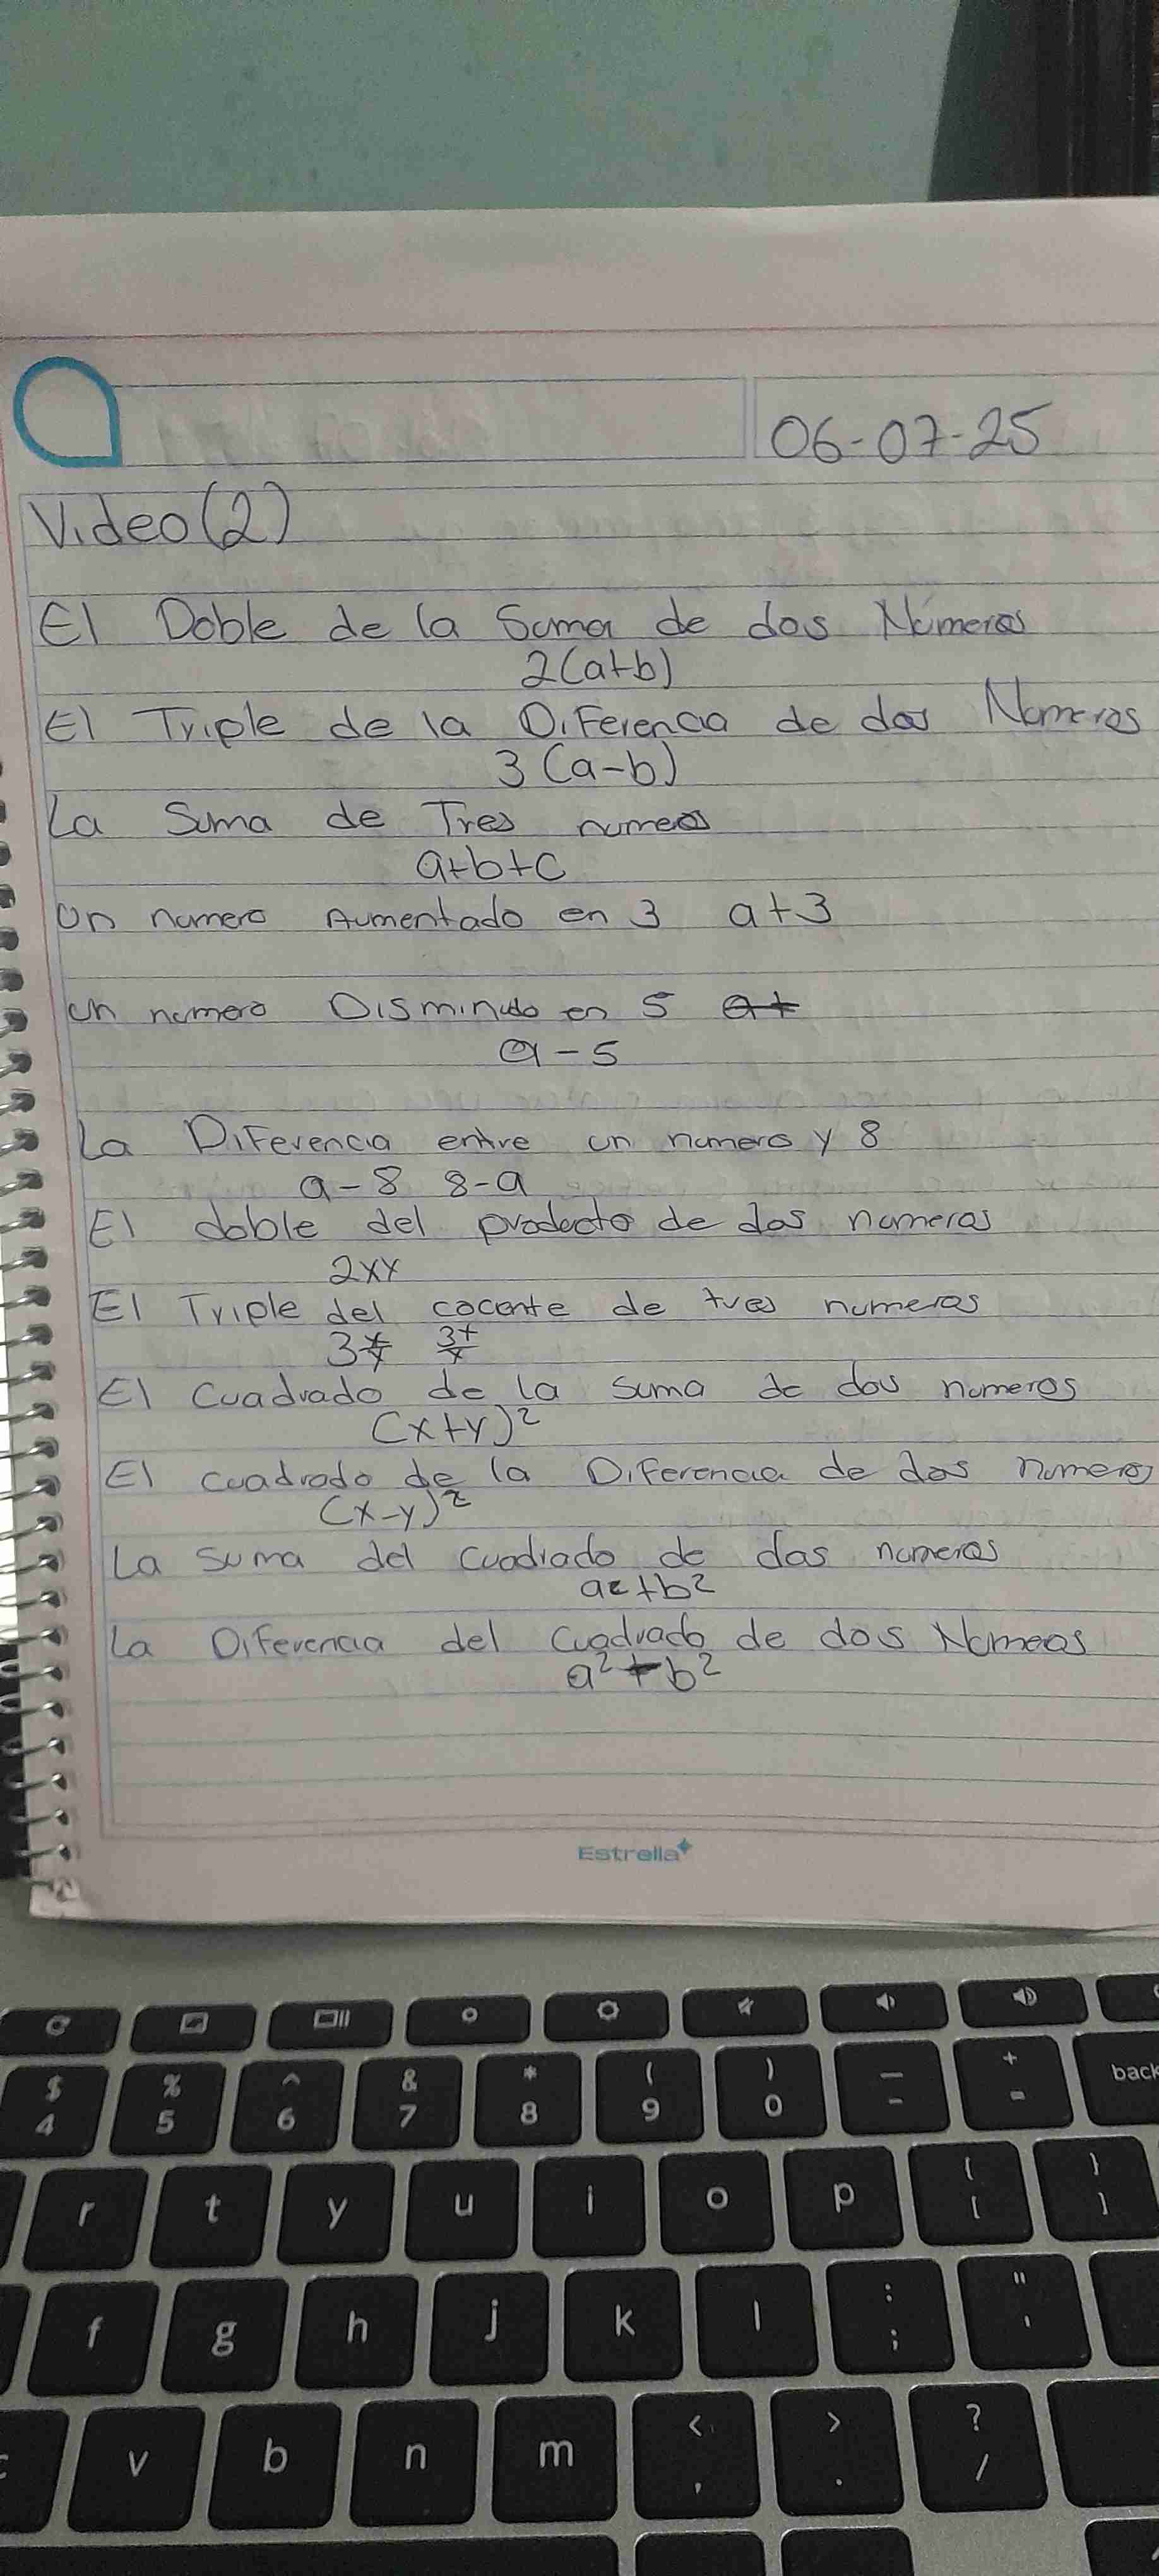 06-07-25
Video(2)
El Doble de la Suma de dos Números
2(a+b)
El Triple de la Diferenca de dos Numeros
3(a-b)
La Suma de Tres numeos
a+b+c
Un numero Aumentado en 3 a+3
un numero Disminudo en 5
a-5
La Diferencia entre un numero y 8
a-8 8-a
El doble del producto de dos numeros
2xy
El Triple del cocente de tres numeros
El Cuadrado de la suma de dos numeros
(x+y)²
El cuadrado de la Diferencia de dos numeros
(x-y)²
La suma del cuadrado de dos numeros
a²+b²
La Diferencia del Cuadrado de dos Numeos
a²-b²
Estrella
$ % ^ & * ( ) — + back
4 5 6 7 8 9 0 - =
r t y u i o p { [ } ]
f g h j k l : ; " '
v b n m < , > . ? /